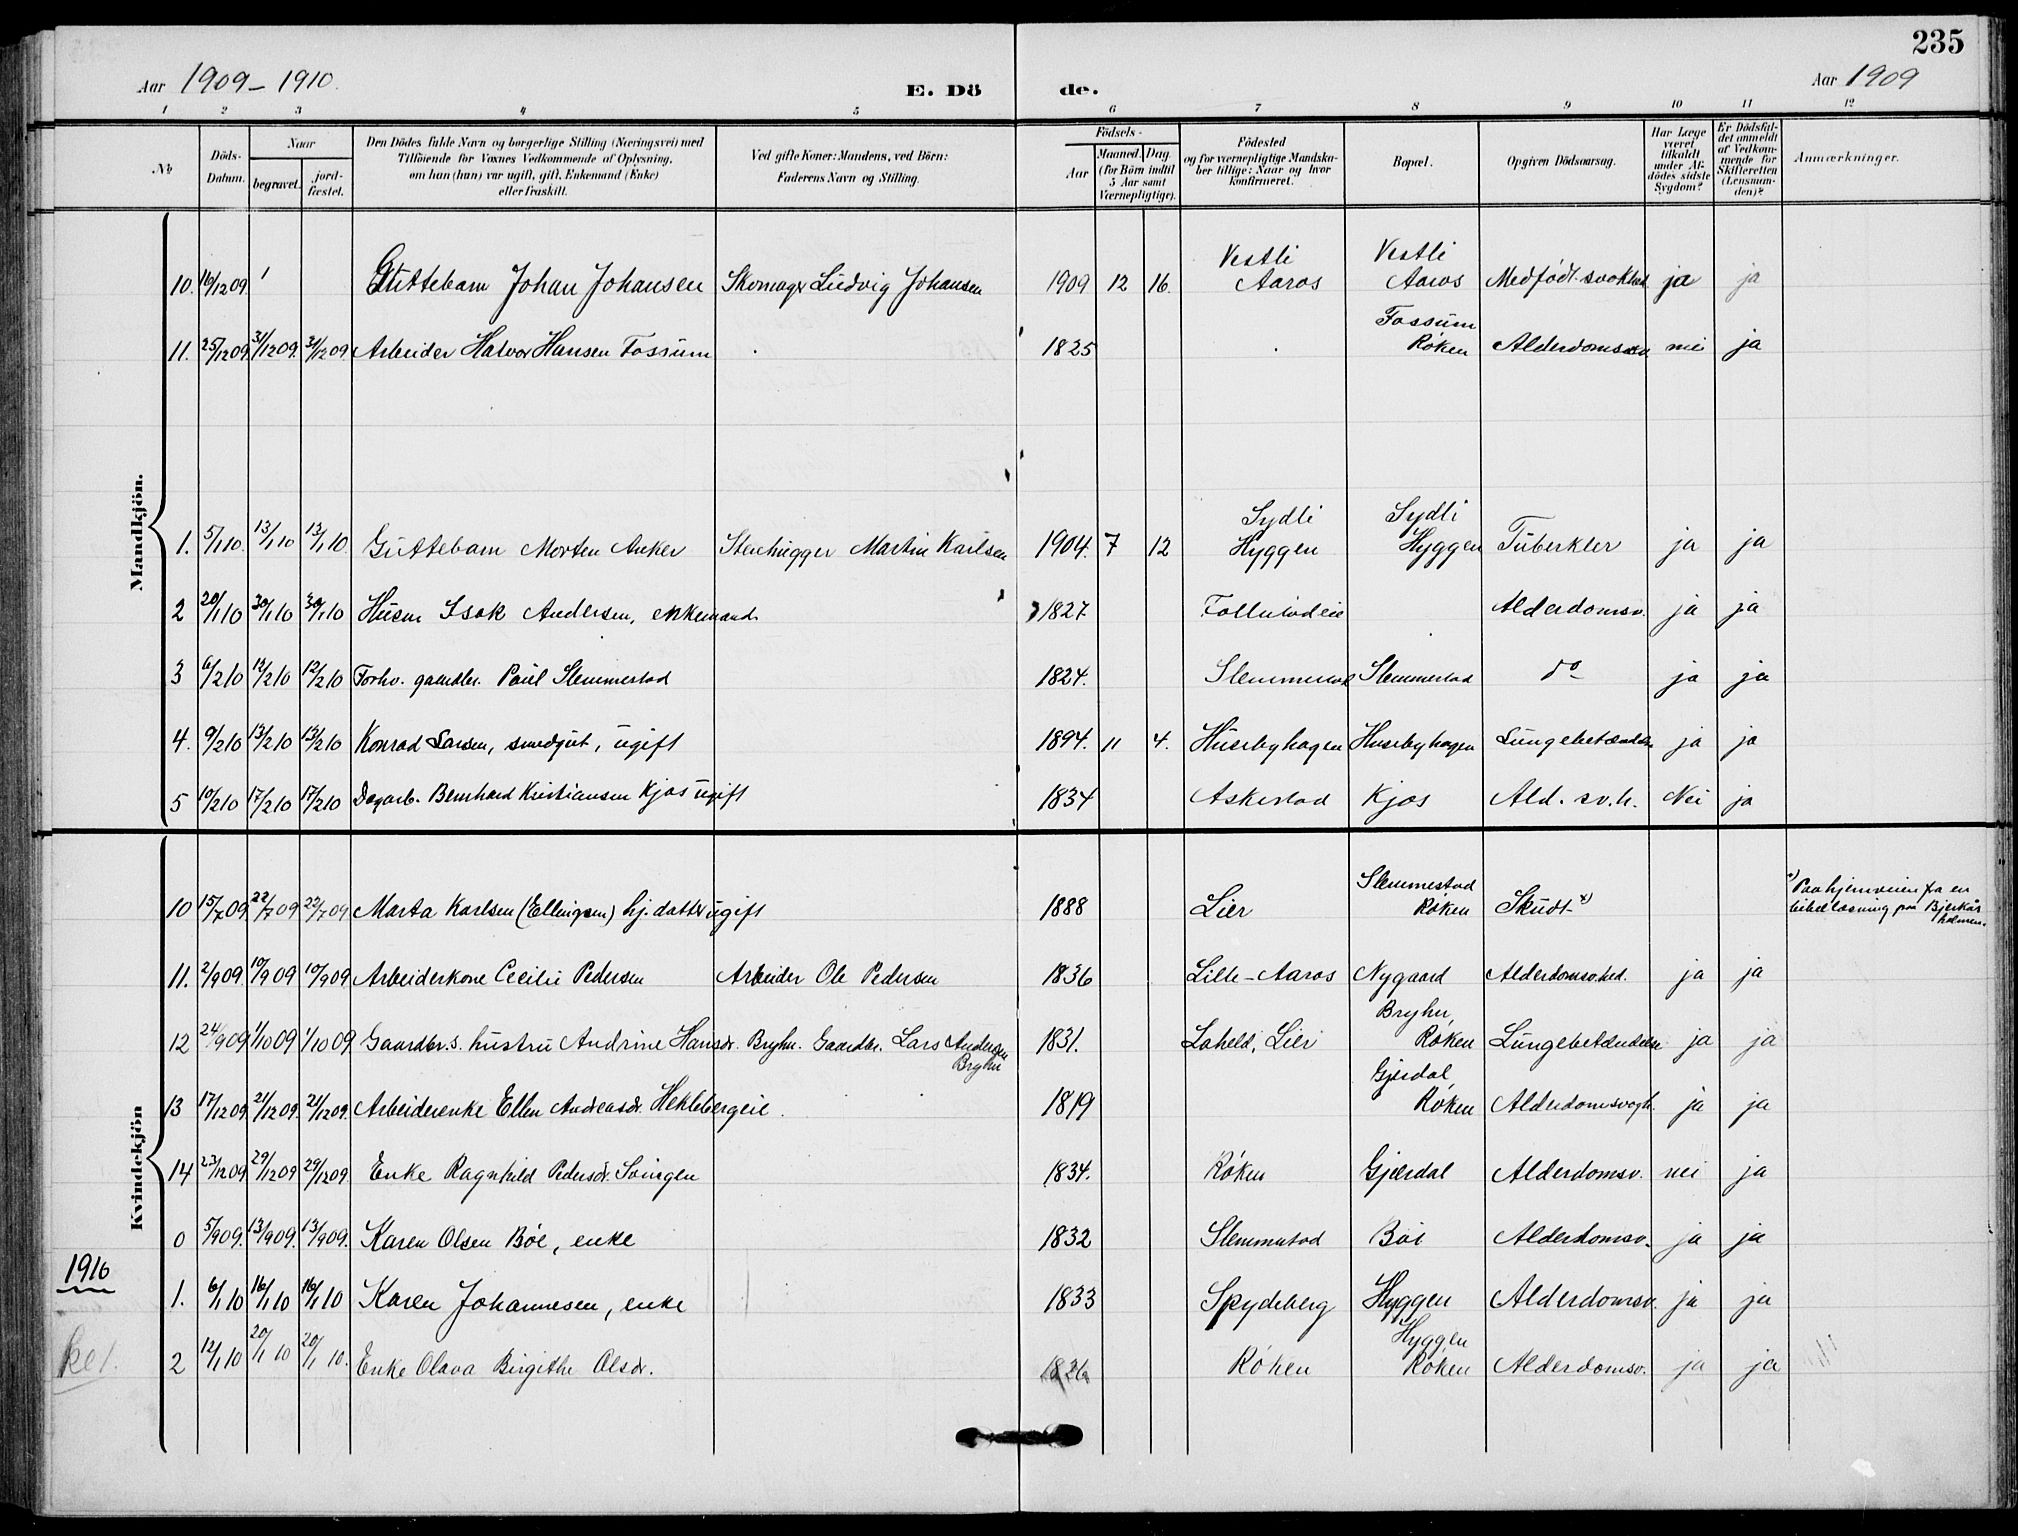 235
Aar 1909 - 1910.
E. Dö de.
Aar 1909
1 2 3 4 5 6 7 8 9 10 11 12
No
Döds-Datum.
Naar
begravet.
jord-fæstet.
Den Dödes fulde Navn og borgerlige Stilling (Næringsvei) med
Tilföiende for Voxnes Vedkommende af Oplysning,
om han (hun) var ugift, gift, Enkemand (Enke)
eller fraskilt.
Ved gifte Koner: Mandens, ved Börn:
Faderens Navn og Stilling.
Födsels-
Aar
Maaned. Dag.
(for Börn indtil
5 Aar samt
Værnepligtige).
Födested
og for værnepligtige Mandska-
ber tillige: Naar og hvor
konfirmeret.
Bopæl.
Opgiven Dödsaarsag.
Har Læge
været
tilkaldt
under Af-
dödes sidste
Sygdom?
Er Dödsfal-
det anmeldt
af Vedkom-
mende for
Skifteretten
(Lensman-
den)?
Anmærkninger.
Mandkjön.
10. 16/12 09. Guttebarn Johan Johansen Skomager Ludvig Johansen 1909 12 16. Vestli Aaros Vestli Aaros Medfödt svakhed ja ja
11. 25/12 09. 31/12 09. 31/12 09 Arbeider Halvor Hansen Fossum 1825 Fossum Röken Alderdomssv. nei ja
1. 5/1 10. 13/1 10 13/1 10. Guttebarn Morten Anker Stenhugger Martin Karlsen 1904. 7 12 Sydli Hyggen Sydli Hyggen Tuberkler ja ja
2 20/1 10 30/1 10 30/1 10 Husm Isak Andersen, enkemand. 1827 Follestadeie Alderdomsv. ja ja
3 6/2 10 12/2 10 12/2 10 Forhv. gaardbr. Paul Slemmestad 1824. Slemmestad Slemmestad do ja ja
4. 9/2 10 13/2 10 13/2 10 Konrad Larsen, smedgut, ugift 1894. 11 4. Husebyhagen Husebyhagen Lungebetændelse ja ja
5 10/2 10 17/2 10 17/2 10 Dagarb. Bernhard Kristiansen Kjos ugift 1834 Askestad Kjos Ald. sv.h. Nei ja
Kvindekjön
10 15/7 09 22/7 09 22/7 09 Marta Karlsen (Ellingsen) hj. datter ugift 1888 Lier Slemmestad Röken Skudt x) x) Paa hjemveien fra en
bibellæsning paa Bjerkås
holmen.
11. 2/9 09. 10/9 09 10/9 09 Arbeiderkone Cecilie Pedersen Arbeider Ole Pedersen 1836 Lille-Aaros Nygaard Alderdomsv.hed. ja ja
12 24/9 09 1/10 09 1/10 09 Gaardbr.s. hustru Andrine Hansdr. Bryhn. Gaardbr. Lars Andersen Bryhn 1831. Laheld, Lier Bryhn, Röken Lungebetændelse ja ja
13 17/12 09. 21/12 09. 21/12 09. Arbeiderenke Ellen Andreasdr. Heklebergeie. 1819 Gjerdal, Röken Alderdomsvagh. ja ja
14 23/12 09 29/12 09 29/12 09 Enke Ragnhild Pedersdr. Svingen 1834. Röken Gjerdal Alderdomsv. nei ja
0 5/9 09. 13/9 09. 13/9 09. Karen Olsen Böe, enke 1832 Slemmestad Böe Alderdomsv. ja ja
1910
1. 6/1 10 16/1 10 16/1 10 Karen Johannesen, enke 1833 Spydeberg Hyggen Alderdomsv. ja ja
2 12/1 10 20/1 10 20/1 10. Enke Olava Birgithe Olsdr. 1826 Röken Hyggen Röken Alderdomsv. ja ja